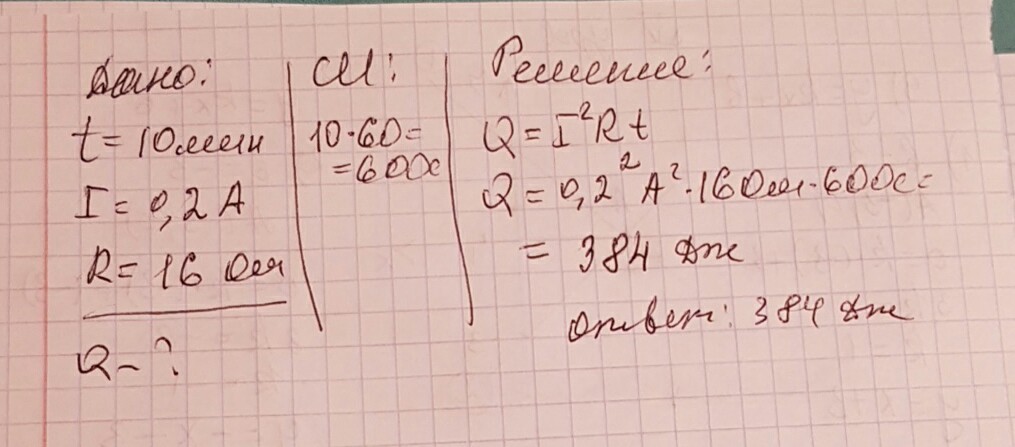 Дано:
t = 10 мин
I = 0,2 А
R = 16 Ом
Q - ?
СИ:
10·60=
=600с
Решение:
Q = I²Rt
Q = 0,2² А²·16 Ом·600с=
= 384 Дж
Ответ: 384 Дж